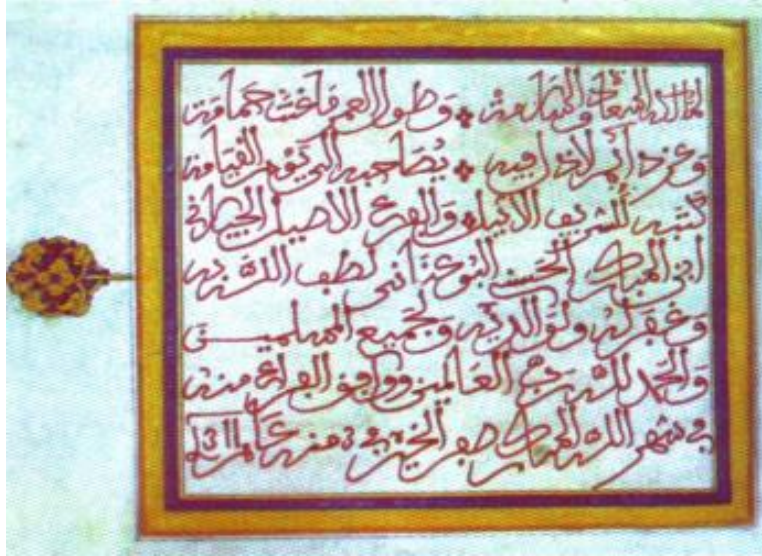 لمالكه السعادة والسلامة وطول العمر ما غنت حمامة
وعز دائم لا ذل فيه يصاحبه الى يوم القيامة
كتبه للشريف الاثيل والفرع الاصيل
ابى المبارك الحسن البوعنانى لطف الله به
وغفر له ولوالديه ولجميع المسلمين
والحمد لله رب العالمين ووافق الفراغ منه
في شهر الله المبارك صفر الخير في 3 منه عام